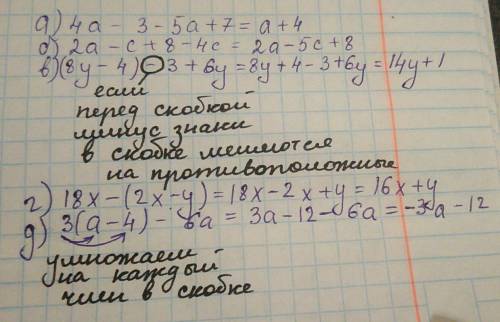 а) 4a - 3 - 5a + 7 = a + 4
б) 2a - c + 8 - 4c = 2a - 5c + 8
в) (8y - 4) - 3 + 6y = 8y + 4 - 3 + 6y = 14y + 1
если
перед скобкой
минус знаки
в скобке меняются
на противоположные
г) 18x - (2x - y) = 18x - 2x + y = 16x + y
д) 3(a - 4) - 6a = 3a - 12 - 6a = -3a - 12
умножаем
на каждый
член в скобке